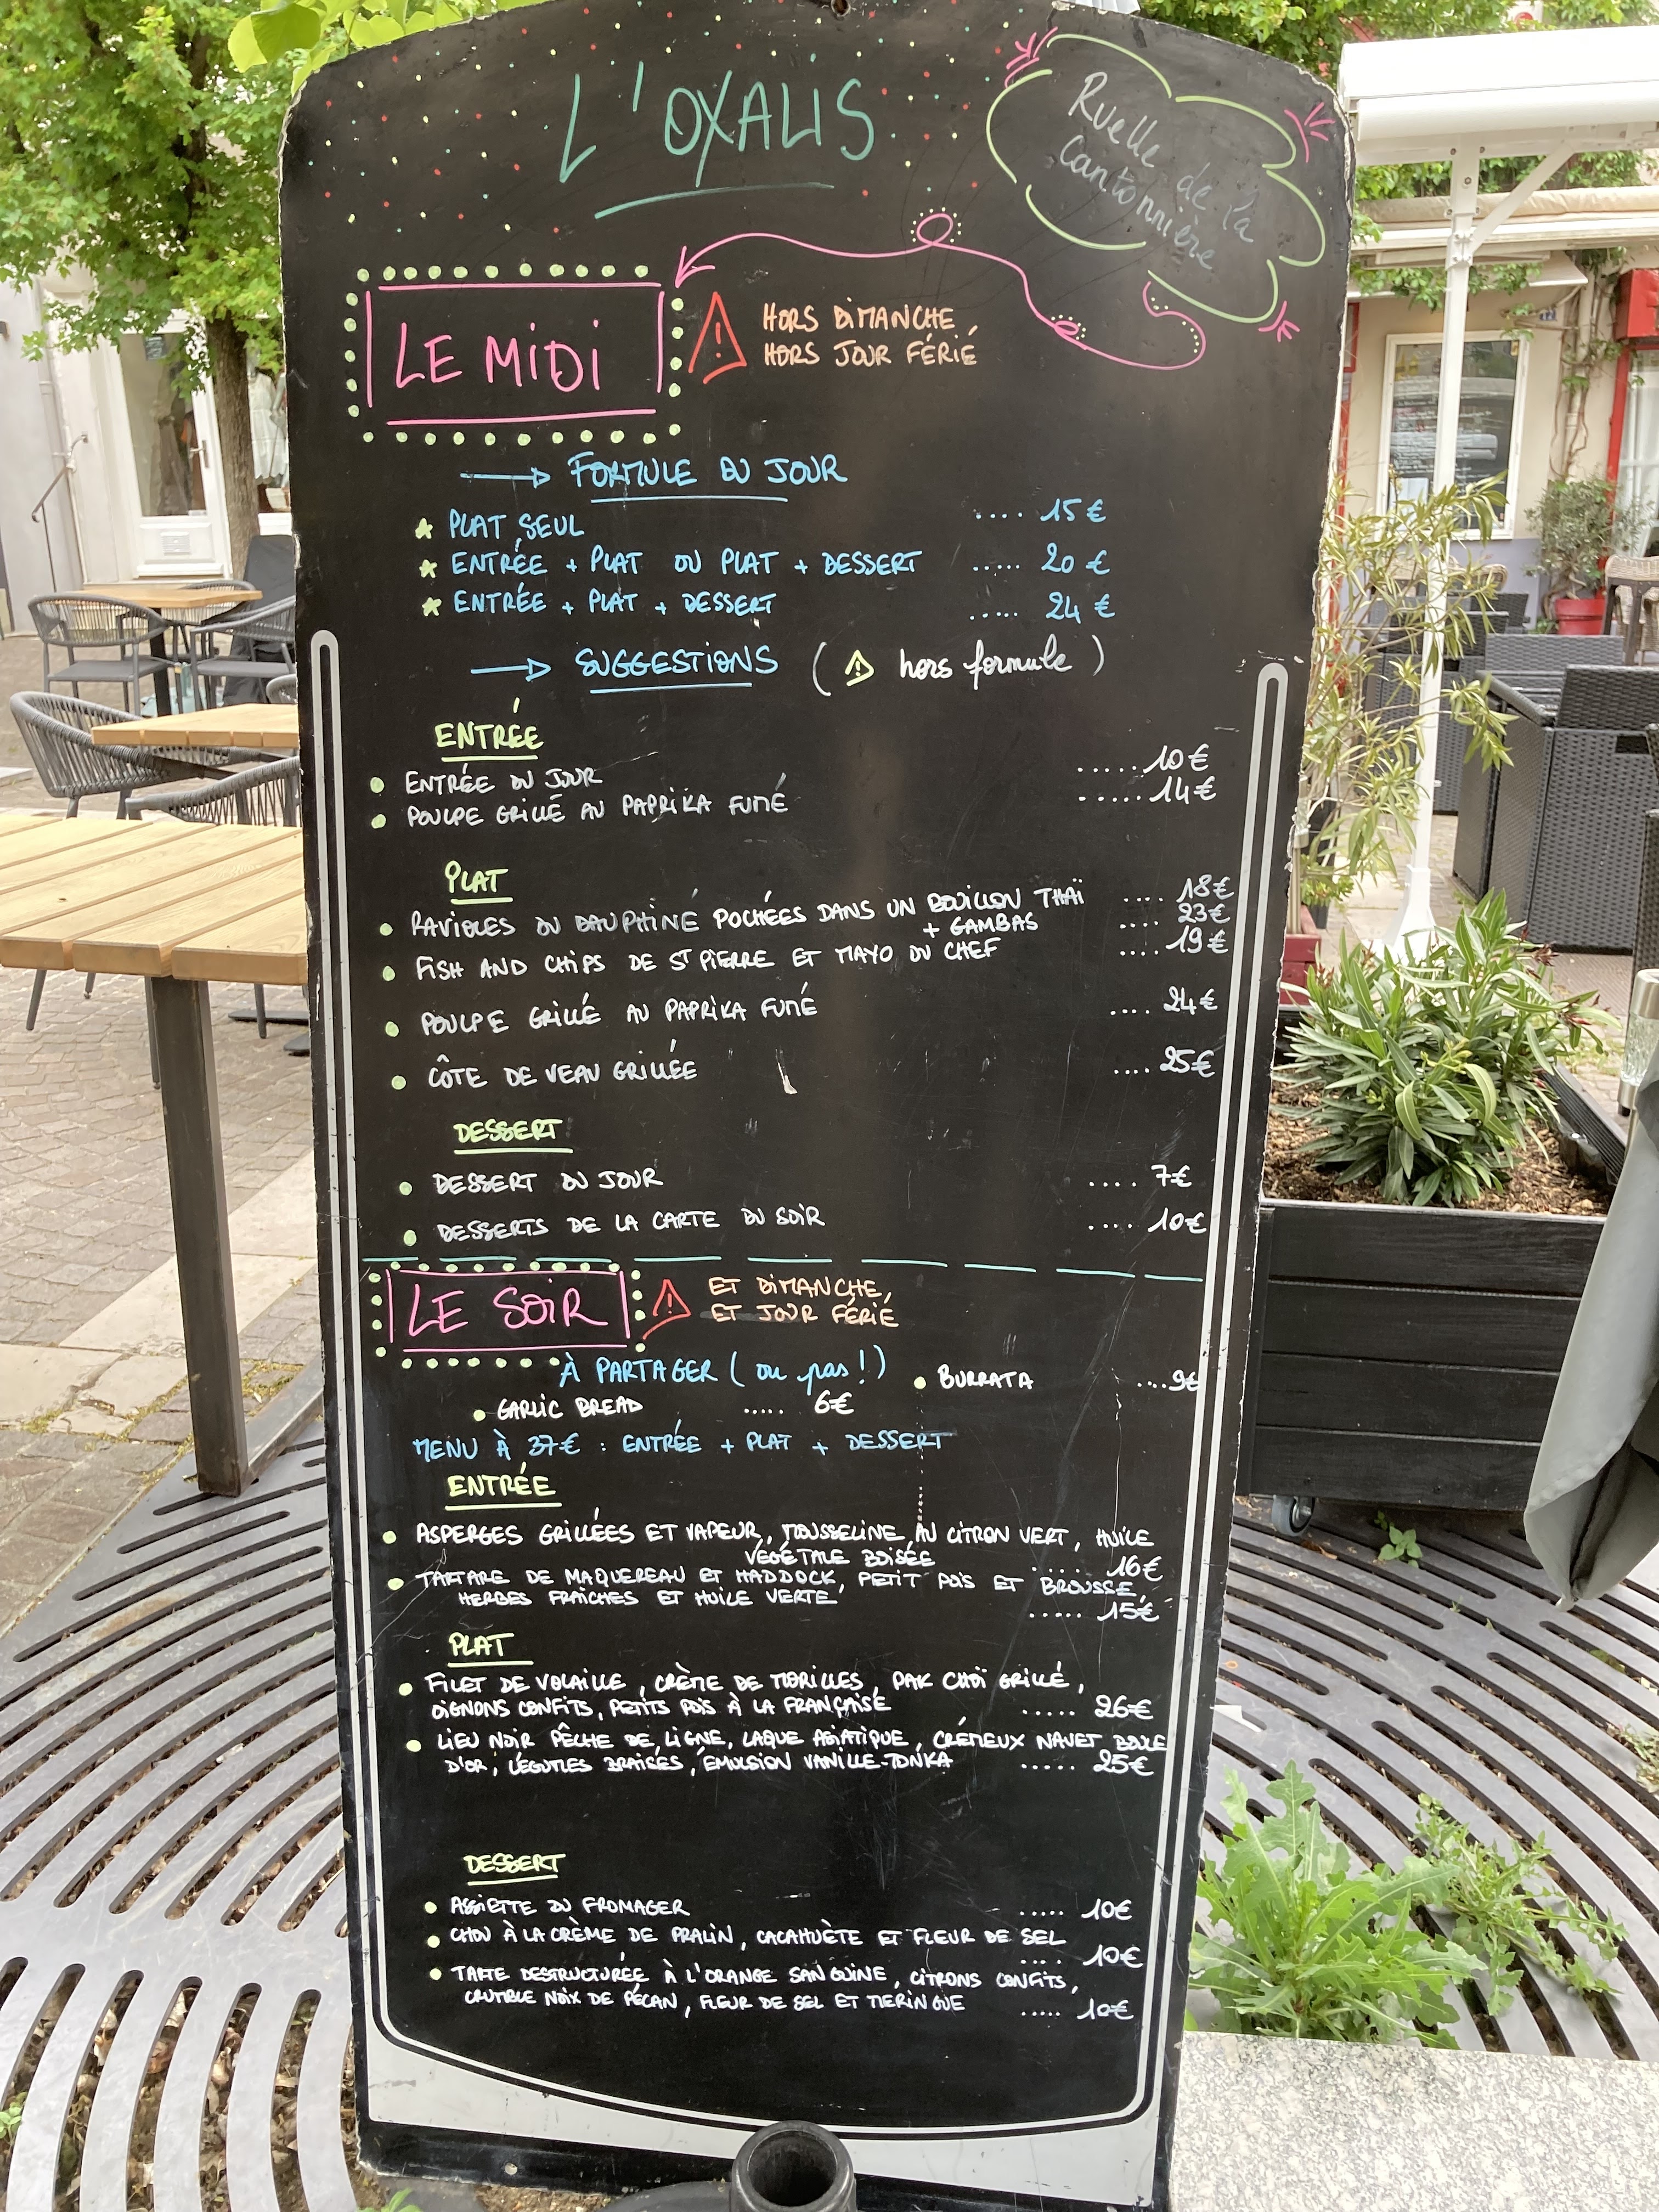 L'OXALIS
Ruelle de la
Cantonnière
LE MIDI
HORS DIMANCHE,
HORS JOUR FÉRIÉ
FORMULE DU JOUR
PLAT SEUL .... 15€
ENTRÉE + PLAT OU PLAT + DESSERT ..... 20€
ENTRÉE + PLAT + DESSERT ..... 24€
SUGGESTIONS (⚠ hors formule)
ENTRÉE
ENTRÉE DU JOUR ..... 10€
POULPE GRILLÉ AU PAPRIKA FUMÉ ..... 14€
PLAT
RAVIOLES DU DAUPHINÉ POCHÉES DANS UN BOUILLON THAÏ .... 18€
+ GAMBAS .... 23€
FISH AND CHIPS DE ST PIERRE ET MAYO DU CHEF .... 19€
POULPE GRILLÉ AU PAPRIKA FUMÉ .... 24€
CÔTE DE VEAU GRILLÉE .... 25€
DESSERT
DESSERT DU JOUR .... 7€
DESSERTS DE LA CARTE DU SOIR .... 10€
LE SOIR
ET DIMANCHE,
ET JOUR FÉRIÉ
À PARTAGER (ou pas!)
BURRATA ....9€
GARLIC BREAD ..... 6€
MENU À 37€ : ENTRÉE + PLAT + DESSERT
ENTRÉE
ASPERGES GRILLÉES ET VAPEUR, MOUSSELINE AU CITRON VERT, HUILE
VÉGÉTALE BOISÉE ..... 16€
TARTARE DE MAQUEREAU ET HADDOCK, PETIT POIS ET BROUSSE,
HERBES FRAÎCHES ET HUILE VERTE ..... 15€
PLAT
FILET DE VOLAILLE, CRÈME DE MORILLES, PAK CHOÏ GRILLÉ,
OIGNONS CONFITS, PETITS POIS À LA FRANÇAISE ..... 26€
LIEU NOIR PÊCHE DE LIGNE, LAQUE ASIATIQUE, CRÉMEUX NAVET BOULE
D'OR, LÉGUMES BRAISÉS, ÉMULSION VANILLE-TONKA ..... 25€
DESSERT
ASSIETTE DU FROMAGER ..... 10€
CHOU À LA CRÈME DE PRALIN, CACAHUÈTE ET FLEUR DE SEL
.... 10€
TARTE DESTRUCTURÉE À L'ORANGE SANGUINE, CITRONS CONFITS,
CRUMBLE NOIX DE PÉCAN, FLEUR DE SEL ET MERINGUE ..... 10€